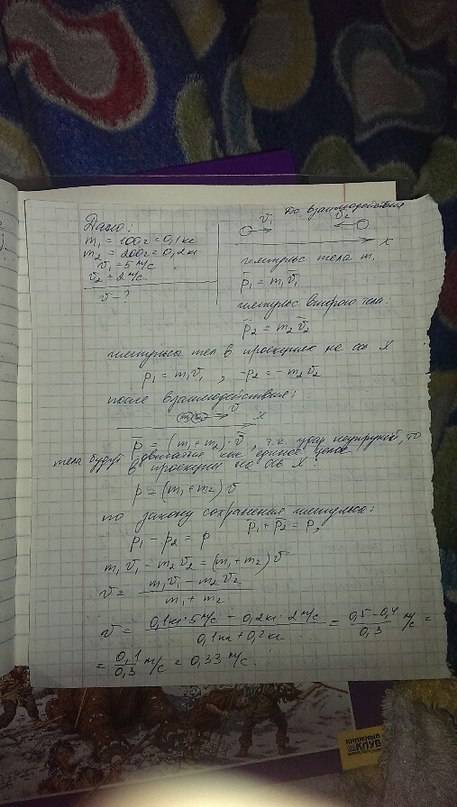 до взаимодействия
Дано:
m₁ = 100г = 0,1кг
m₂ = 200г = 0,2кг
v₁ = 5 м/с
v₂ = 2 м/с
v - ?
v̄₁ v̄₂
x
импульс тела m₁
p̄₁ = m₁v̄₁
импульс второго тела
p̄₂ = m₂v̄₂
импульсы тел в проекциях на ось X
p₁ = m₁v₁ , -p₂ = -m₂v₂
после взаимодействия:
v̄ x
p̄ = (m₁+m₂)·v̄, т.к. удар неупругий, то
тела будут двигаться как единое целое
в проекции на ось X
p = (m₁+m₂)v
по закону сохранения импульса:
p̄₁ + p̄₂ = p̄,
p₁ - p₂ = p
m₁v₁ - m₂v₂ = (m₁+m₂)v
v = (m₁v₁ - m₂v₂)/(m₁ + m₂)
v = (0,1кг·5м/с - 0,2кг·2м/с)/(0,1кг+0,2кг) = (0,5-0,4)/0,3 м/с =
= 0,1/0,3 м/с = 0,33 м/с.
КНИЖНЫЙ
КЛУБ